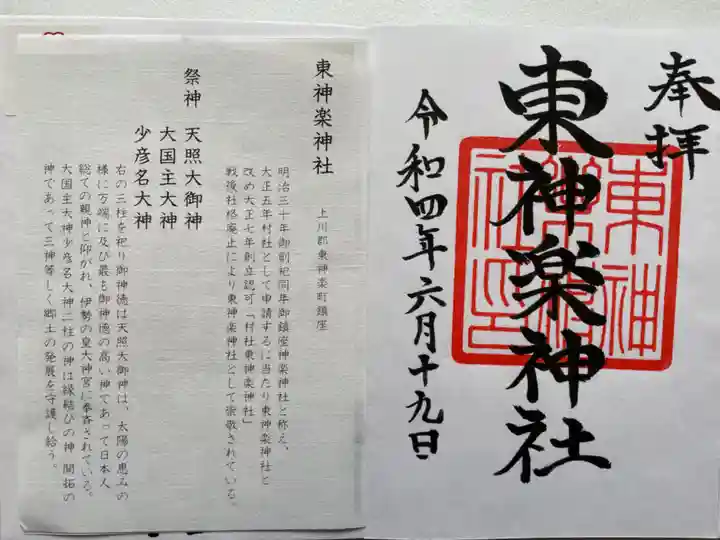 奉拝
東神楽神社
令和四年六月十九日
東神楽神社
上川郡東神楽町鎮座
明治三十年御創祀同年御鎮座神楽神社と称え、
大正五年村社として申請するに当たり東神楽神社と
改め大正七年創立認可「村社東神楽神社」
戦後社格廃止により東神楽神社として崇敬されている。
祭神 天照大御神
大国主大神
少彦名大神
右の三柱を祀り御神徳は天照大御神は、太陽の恵みの
様に万端に及び最も御神徳の高い神であって日本人
総ての親神と仰がれ、伊勢の皇大神宮に奉斎されている。
大国主大神少彦名大神二柱の神は縁結びの神 開拓の
神であって三神等しく郷土の発展を守護し給う。